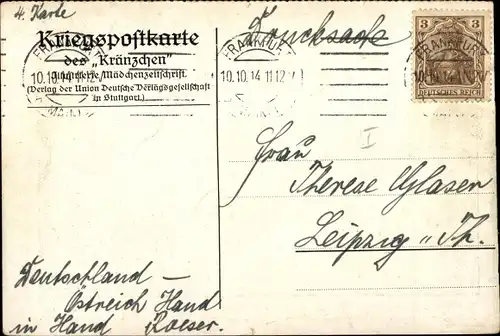 4. Karte
Kriegspostkarte
des „Kränzchen"
Illustrierte Mädchenzeitschrift.
(Verlag der Union Deutsche Verlagsgesellschaft
in Stuttgart.)
Drucksache
FRANKFURT
10.10.14 11-12 V
(MAIN)
FRANKFURT
10.10.14 11-12 V
FRANKFURT
10.10.14
3 3
DEUTSCHES REICH
I
Frau
Therese Glaser
Leipzig
Deutschland –
Östreich Hand
in Hand Roeser.